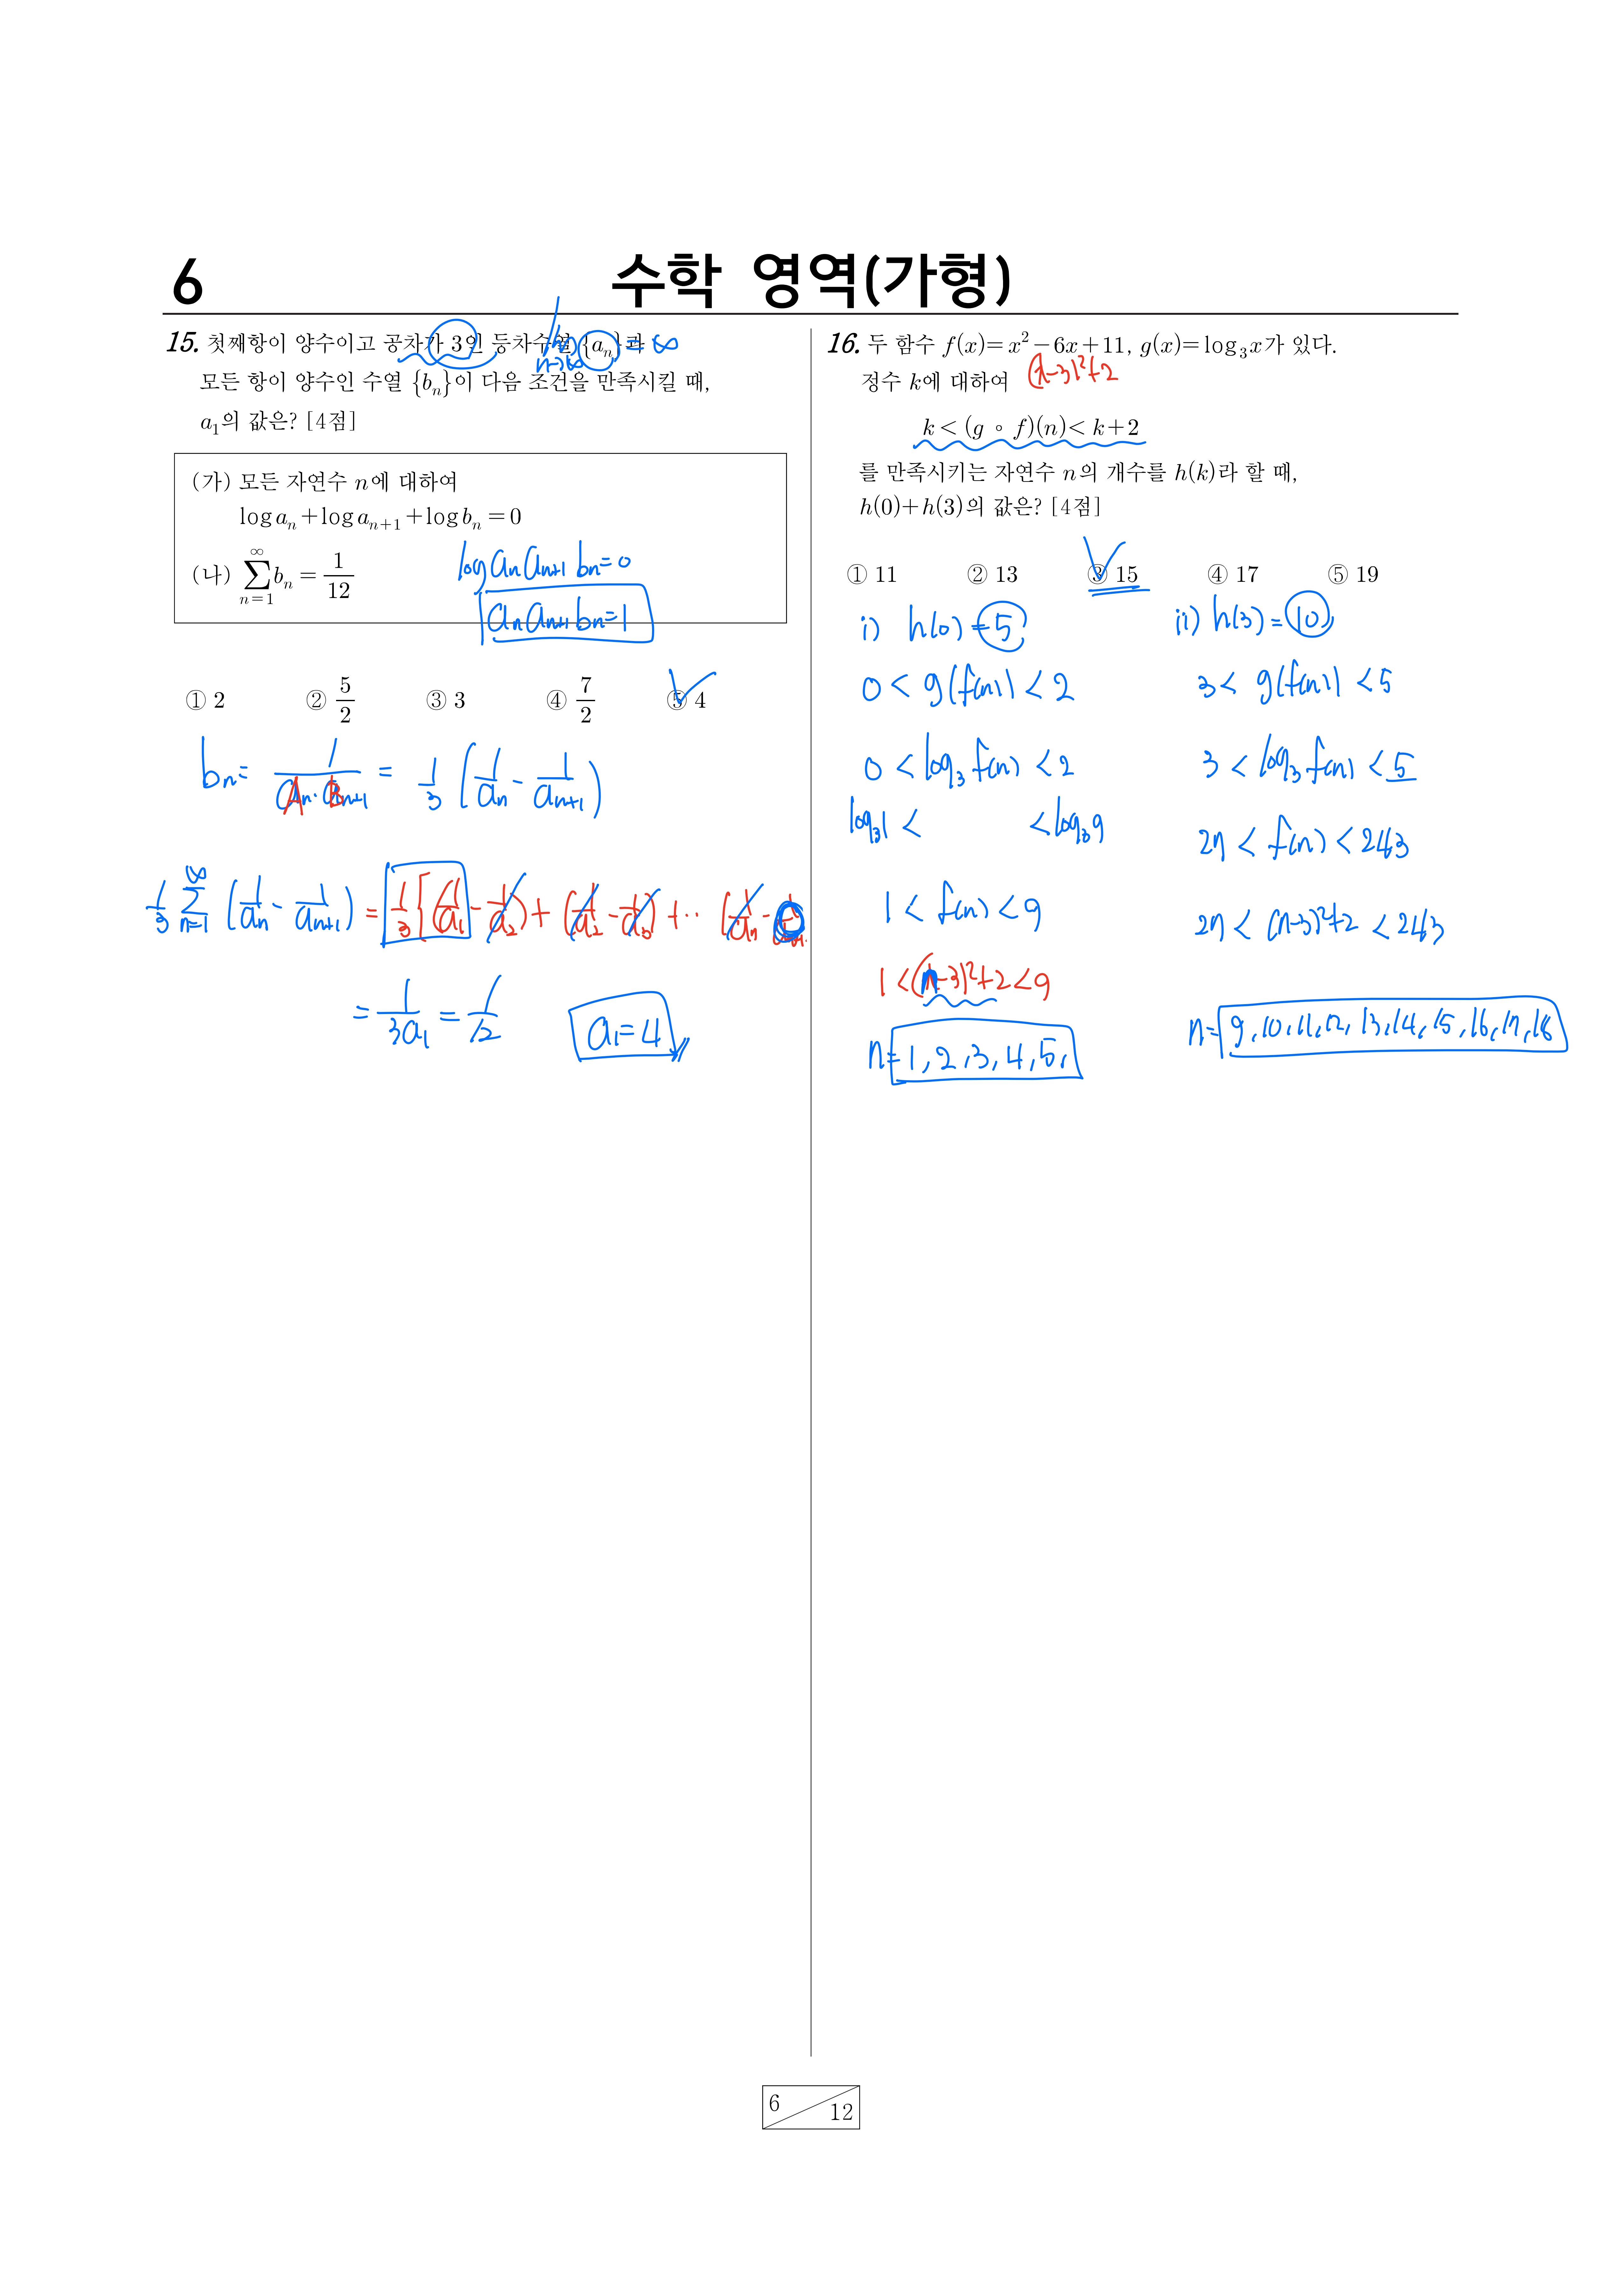 6
수학 영역(가형)
15. 첫째항이 양수이고 공차가 3인 등차수열 {aₙ}과
lim n→∞ aₙ = ∞
모든 항이 양수인 수열 {bₙ}이 다음 조건을 만족시킬 때,
a₁의 값은? [4점]
(가) 모든 자연수 n에 대하여
log aₙ + log aₙ₊₁ + log bₙ = 0
(나) ∑_{n=1}^{∞} bₙ = 1/12
log aₙ aₙ₊₁ bₙ = 0
aₙ aₙ₊₁ bₙ = 1
① 2 ② 5/2 ③ 3 ④ 7/2 ⑤ 4
bₙ = 1/(aₙ·aₙ₊₁) = 1/3 (1/aₙ − 1/aₙ₊₁)
1/3 ∑_{n=1}^{∞} (1/aₙ − 1/aₙ₊₁) = 1/3 [(1/a₁ − 1/a₂) + (1/a₂ − 1/a₃) + ·· (1/aₙ − 0
= 1/(3a₁) = 1/12
a₁ = 4
16. 두 함수 f(x)=x²−6x+11, g(x)=log₃x가 있다.
정수 k에 대하여
(x−3)²+2
k < (g ∘ f)(n) < k+2
를 만족시키는 자연수 n의 개수를 h(k)라 할 때,
h(0)+h(3)의 값은? [4점]
① 11 ② 13 ③ 15 ④ 17 ⑤ 19
i) h(0) = 5
0 < g(f(n)) < 2
0 < log₃ f(n) < 2
log₃1 < < log₃9
1 < f(n) < 9
1 < (n−3)²+2 < 9
n = 1, 2, 3, 4, 5,
ii) h(3) = 10
3 < g(f(n)) < 5
3 < log₃ f(n) < 5
27 < f(n) < 243
27 < (n−3)²+2 < 243
n = 9, 10, 11, 12, 13, 14, 15, 16, 17, 18
6 12